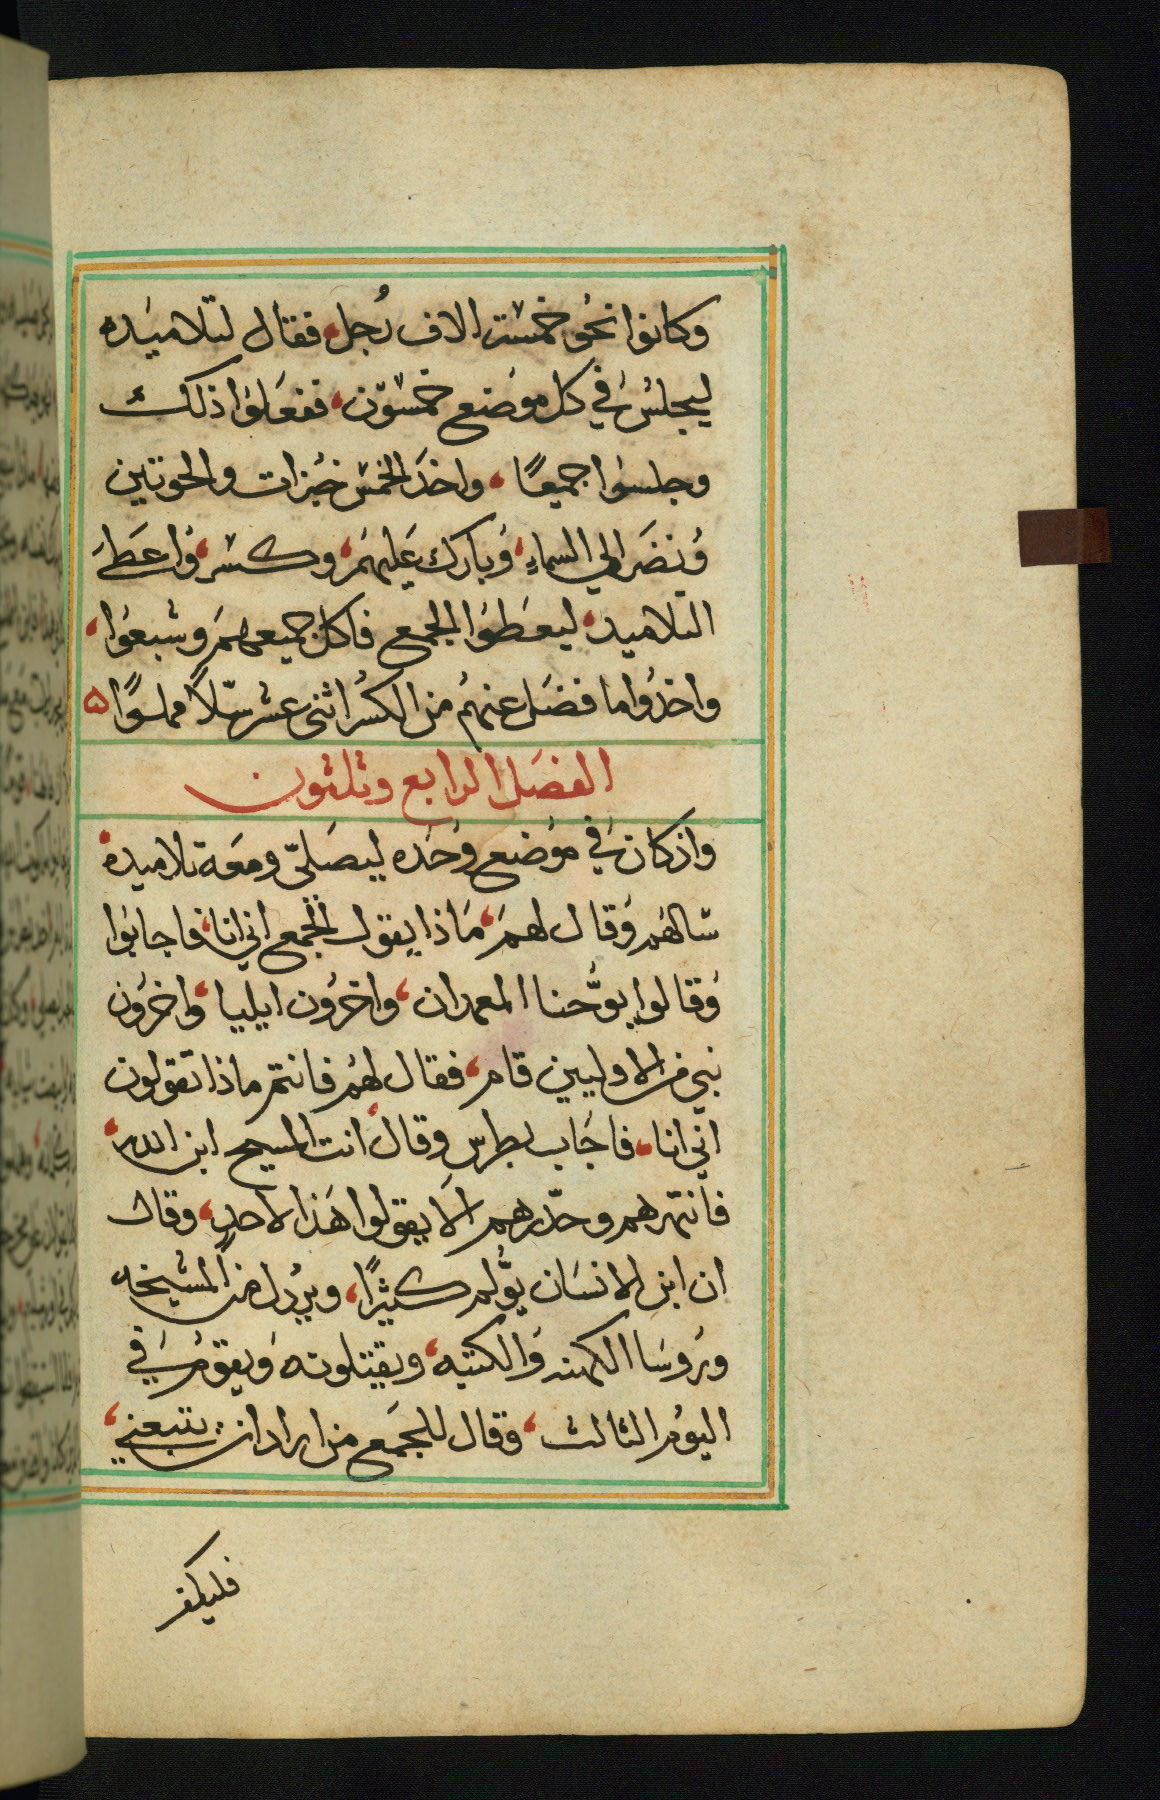 وكانوا نحو خمست الاف رُجل، فقال لتلاميده
ليجلسُ في كل موضع خمسون، ففعلوا ذلك
وجلسوا جميعًا، واخد الخمس خبزات والحوتين
ونضر الي السماءِ، وبارك عليهم، وكسر، واعطي
التلاميد، ليعطوا الجمع فاكل جميعهم وشبعوا،
واخدُوا ما فضل عنهُم من الكسُر اثني عشر سّلاً مملوًا ۵
الفصل الرابع وثلثون
واذ كان في موضع وحده ليصلّي ومعه تلاميده
سالهم وقال لهم، ماذا يقول الجمع اني انا، فاجابوا
وقالوا يوُّحنا المعمدان، واخرُون ايليا، واخرُون
نبي من الاوليين قام، فقال لهُم فانتم ماذا تقولون
اني انا، فاجاب بطرس وقال، انت المسيح ابن الله،
فانتهرهم وحدّرهم الاّ يقولوا هذا لاحدٍ، وقال
ان ابن الانسان يوُّلم كثيرًا، ويردُل من المشيخه
وروسا الكهنه والكتبه، ويقتلونه ويقوم في
اليوُم الثالث، وقال للجمع من اراد ان يتبعني،
فليكفر